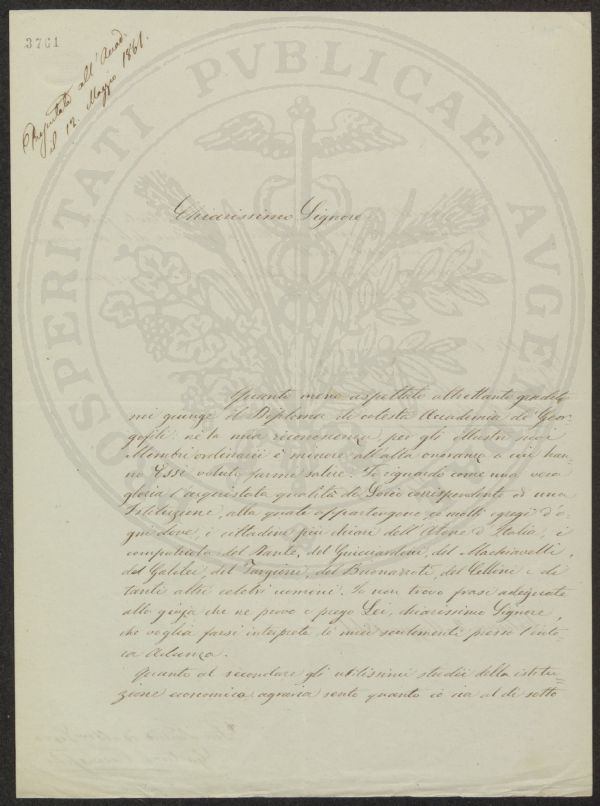 3761
Presentata all'Accad.
il 12. Maggio 1861.
PROSPERITATI PVBLICAE AVGEN
Chiarissimo Signore
Quanto meno aspettato altrettanto gradito
mi giunge il Diploma di cotesta Accademia de' Geor=
gofili: nè la mia riconoscenza per gli illustri suoi
Membri ordinarii è minore all'alta onoranza a cui han=
no Essi voluto farmi salire. Io riguardo come una vera
gloria l'acquistata qualità di Socio corrispondente di una
Istituzione, alla quale appartengono ai molti egregi d'o=
gni dove, i cittadini più chiari dell'Atene d'Italia, i
compatriotti del Dante, del Guicciardini, del Machiavelli,
del Galilei del Targioni, del Buonarroti, del Cellini e di
tanti altri celebri uomini. Io non trovo frasi adeguate
alla gioja che ne provo e prego Lei, chiarissimo Signore,
che voglia farsi interprete de' miei sentimenti presso l'inte=
ra Adunza.
Quanto al secondare gli utilissimi studii della istitu=
zione economico agraria sento quanto io sia al di sotto